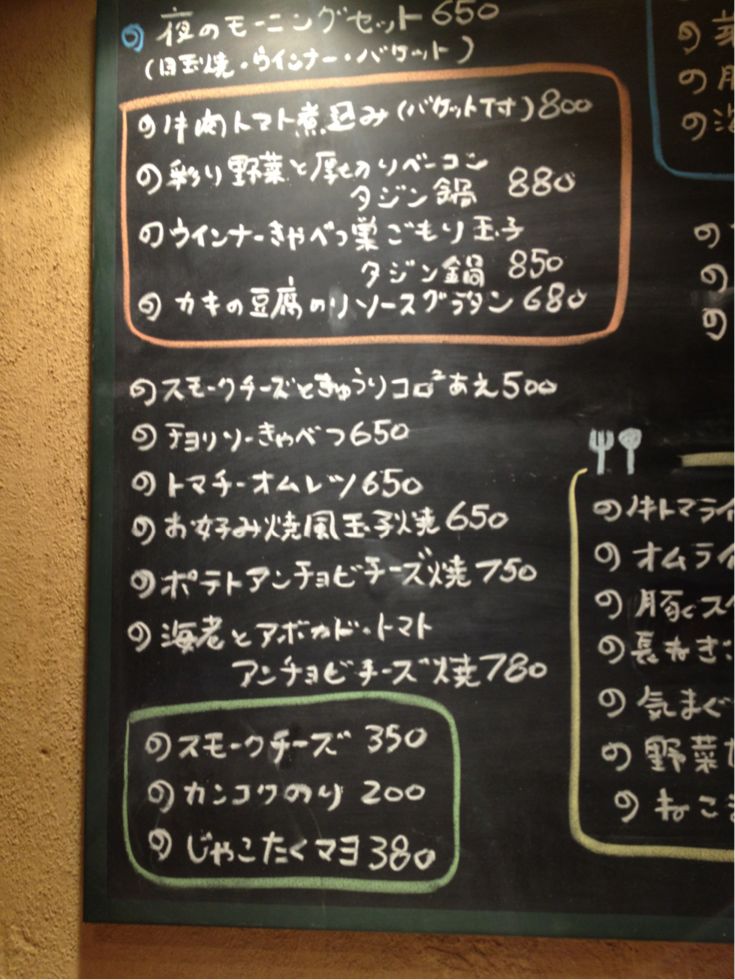 の 夜のモーニングセット 650
(目玉焼・ウインナー・バケット)
の 牛肉トマト煮込み(バケット付)800
の 彩り野菜と厚切りベーコン
タジン鍋 880
の ウインナーきゃべつ巣ごもり玉子
タジン鍋 850
の カキの豆腐のりソースグラタン 680
の スモークチーズときゅうりコロ²あえ 500
の チョリソーきゃべつ 650
の トマチーオムレツ 650
の お好み焼風玉子焼 650
の ポテトアンチョビチーズ焼 750
の 海老とアボカド・トマト
アンチョビチーズ焼 780
の スモークチーズ 350
の カンコクのり 200
の じゃこたくマヨ 380
の
の 豚
の 海
の
の
の
の 牛トマライ
の オムライ
の 豚とス
の 長ねぎ
の 気まぐ
の 野菜
の ねこ